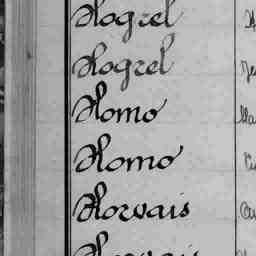 Hogrel
Hogrel
Homo
Homo
Horvais
Horvais